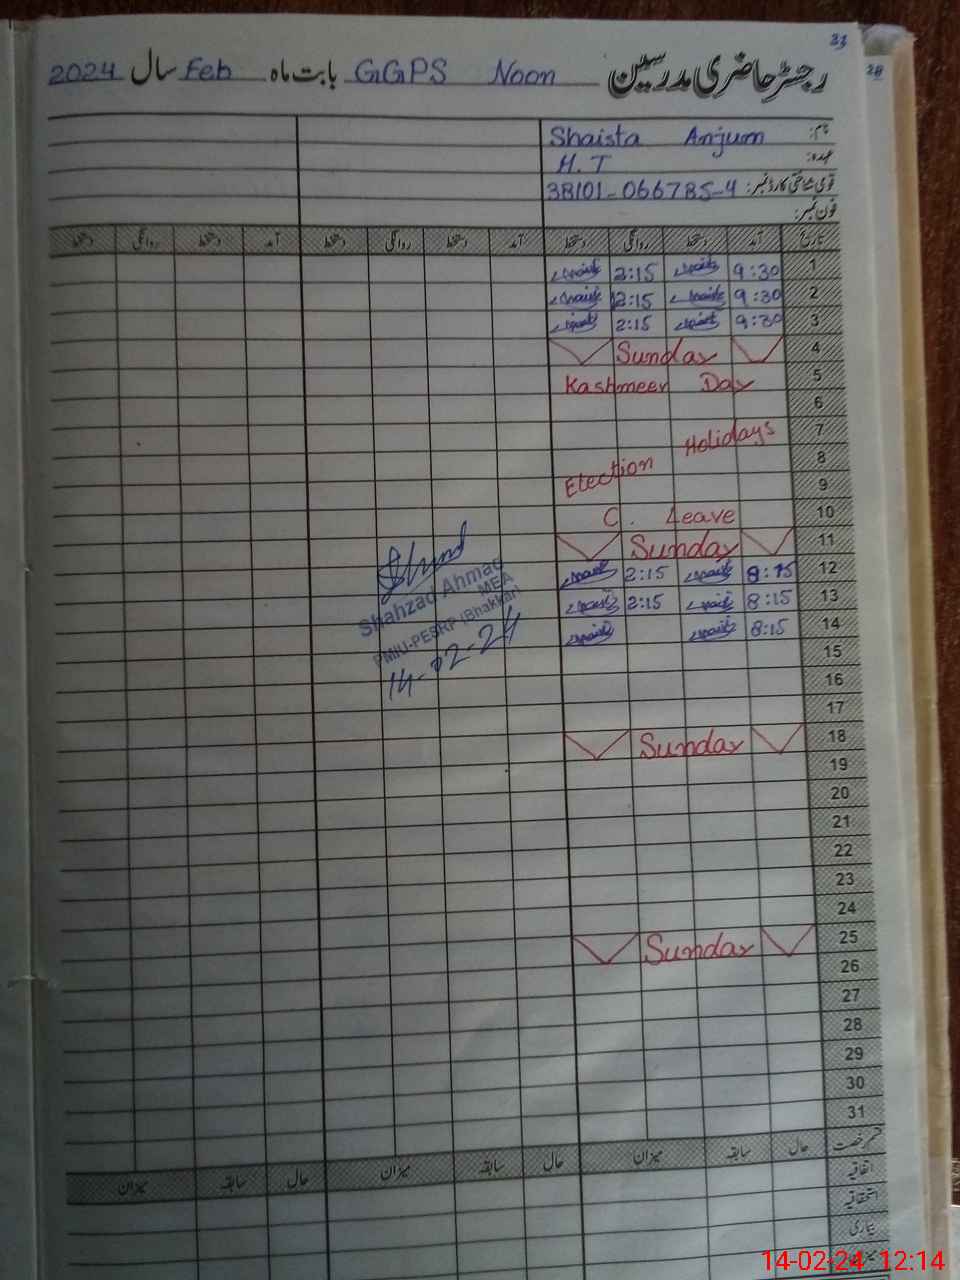 33
28
رجسٹر حاضری مدرسین GGPS Noon بابت ماہ Feb سال 2024
نام: Shaista Anjum
عہدہ: H.T
قومی شناختی کارڈ نمبر: 38101-066785-4
فون نمبر:
تاریخ آمد دستخط روانگی دستخط آمد دستخط روانگی دستخط آمد دستخط روانگی دستخط
1 9:30 2:15
2 9:30 2:15
3 9:30 2:15
4 Sunday
5 Kashmeer Day
6
7 Holidays
8 Election
9
10 C. Leave
11 Sunday
12 8:15 2:15
13 8:15 2:15
14 8:15
15
16
17
18 Sunday
19
20
21
22
23
24
25 Sunday
26
27
28
29
30
31
Shahzad Ahmad
MEA
PMIU-PESRP (Bhakkar)
14-02-24
قسم رخصت حال سابقہ میزان حال سابقہ میزان حال سابقہ میزان
اتفاقیہ
استحقاقیہ
بیماری
14-02-24 12:14